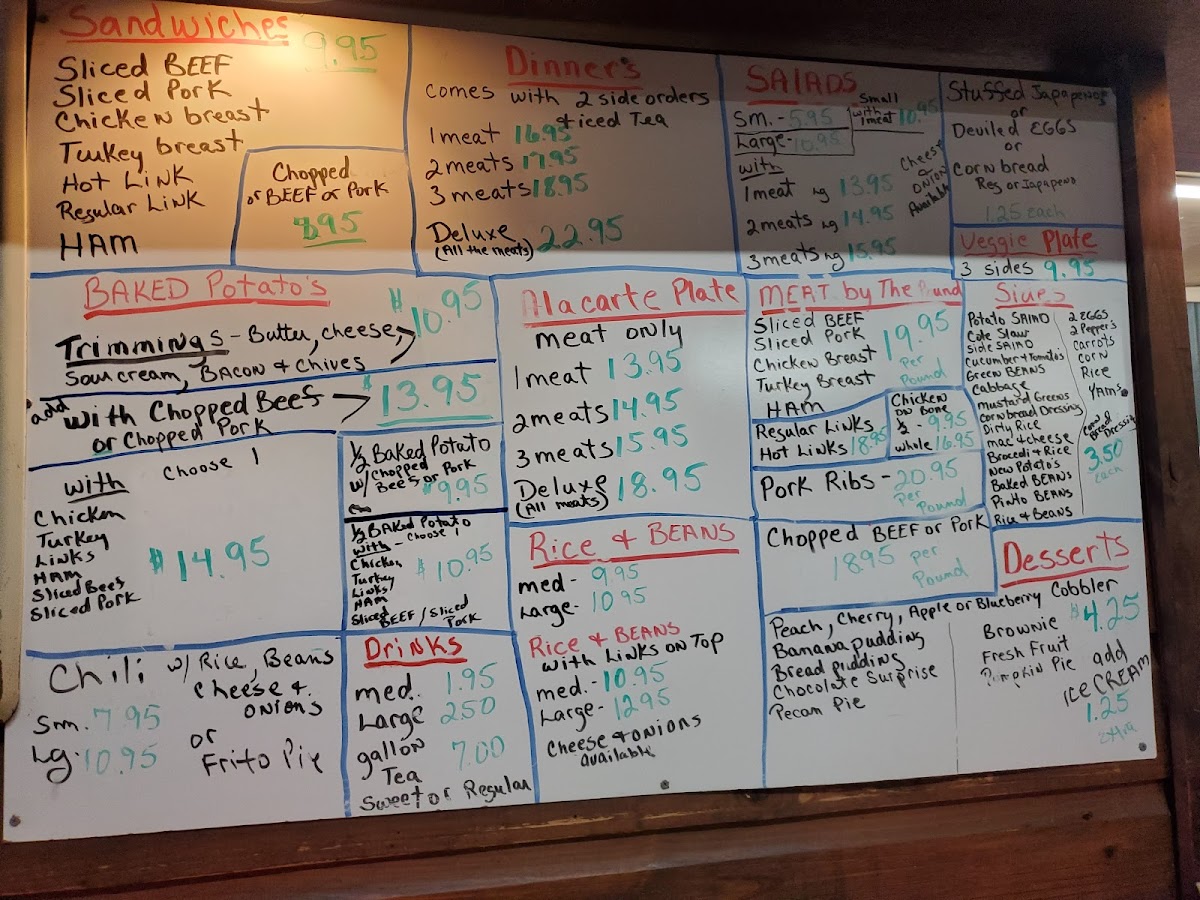 Sandwiches
9.95
Sliced BEEF
Sliced Pork
Chicken breast
Turkey breast
Hot Link
Regular Link
HAM
Chopped
or BEEF or Pork
Dinner's
comes with 2 side orders
+ iced Tea
1 meat 16.95
2 meats 17.95
3 meats 18.95
Deluxe 22.95
(All the meats)
SALADS
Sm. - 5.95
Small
with
1 meat 10.95
Large - 10.95
with
1 meat Lg 13.95
2 meats Lg 14.95
3 meats Lg 15.95
Cheese
& ONION
Available
Stuffed Japapenos
or
Deviled EGGS
or
Corn bread
Reg or Japapeno
1.25 each
Veggie Plate
3 sides 9.95
BAKED Potato's
$10.95
Trimmings - Butter, cheese,
Sour cream, BACON & Chives
add with Chopped Beef
or Chopped Pork
$13.95
with Choose 1
Chicken
Turkey
Links
HAM
Sliced Beef
Sliced Pork
$14.95
1/2 Baked Potato
w/ Chopped
Beef or Pork
$9.95
1/2 BAKED Potato
with - Choose 1
Chicken
Turkey
Links
HAM
Sliced BEEF / Sliced Pork
$10.95
Alacarte Plate
meat only
1 meat 13.95
2 meats 14.95
3 meats 15.95
Deluxe 18.95
(All meats)
MEAT by The Pound
Sliced BEEF
Sliced Pork
Chicken Breast
Turkey Breast
HAM
19.95
per
Pound
Regular Links
Hot Links 18.95
Chicken
ON Bone
1/2 - 9.95
whole 16.95
Pork Ribs - 20.95
per
Pound
Chopped BEEF or Pork
18.95 per
Pound
Sides
Potato SALAD
Cole Slaw
Side SALAD
Cucumber & Tomato's
Green BEANS
Cabbage
Mustard Greens
Cornbread Dressing
Dirty Rice
mac & cheese
Brocoli & Rice
New Potato's
Baked BEANS
Pinto BEANS
Rice & Beans
2 EGGS
2 Pepper's
Carrots
Corn
Rice
Yams
Corn
Bread Dressing
3.50
each
Rice & BEANS
med - 9.95
Large - 10.95
Rice & BEANS
with LINKS ON TOP
med. - 10.95
Large - 12.95
Cheese & ONIONS
available
Desserts
Peach, Cherry, Apple or Blueberry Cobbler
Banana pudding
Bread pudding
Chocolate Surprise
Pecan Pie
Brownie
Fresh Fruit
Pumpkin Pie
$4.25
add
ICE CREAM
1.25
extra
Chili w/ Rice, Beans
Cheese &
ONIONS
Sm. 7.95
Lg. 10.95
or
Frito Pie
DrINKS
med. 1.95
Large 2.50
gallon
Tea 7.00
Sweet or Regular